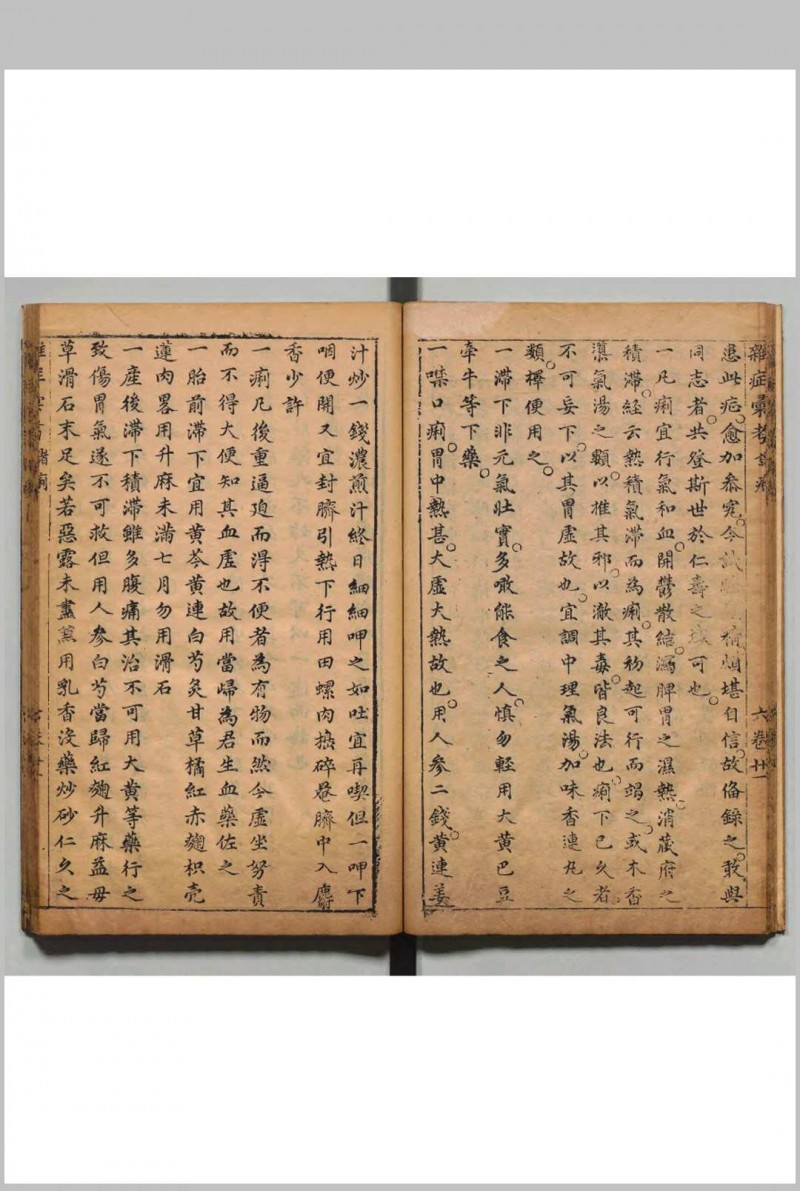 雜症彙考 六卷 廿一
患此疟愈加叅究今 堪自信故俻録之敢與
同志者共登斯世於仁壽之域可也
一凡痢宜行氣和血開鬱散結瀉脾胃之濕熱消蔵府之
積滯經云熱積氣滯而為痢其初起可行而竭之或木香
滇氣湯之類以推其邪以澈其毒皆良法也痢下已久者
不可妄下以其胃虛故也宜調中理氣湯加味香連丸之
類擇便用之
一滯下非元氣壯實多噉能食之人慎勿輕用大黄巴豆
牽牛等下藥
一噤口痢胃中熱甚大虛大熱故也用人參二錢黄連姜
汁炒一錢濃煎汁終日細細呷之如吐宜再喫但一呷下
咽便開又宜封臍引熱下行用田螺肉搗碎罨臍中入麝
香少許
一痢凡後重逼迫而得不便者為有物而然今虛坐努責
而不得大便知其血虛也故用當歸為君生血藥佐之
一胎前滯下宜用黄芩黄連白芍炙甘草橘紅赤麯枳壳
蓮肉畧用升麻未滿七月勿用滑石
一產後滯下積滯雖多腹痛其治不可用大黄等藥行之
致傷胃氣遂不可救但用人參白芍當歸紅麯升麻益母
草滑石末足矣若惡露未盡䒷用乳香没藥炒砂仁久之